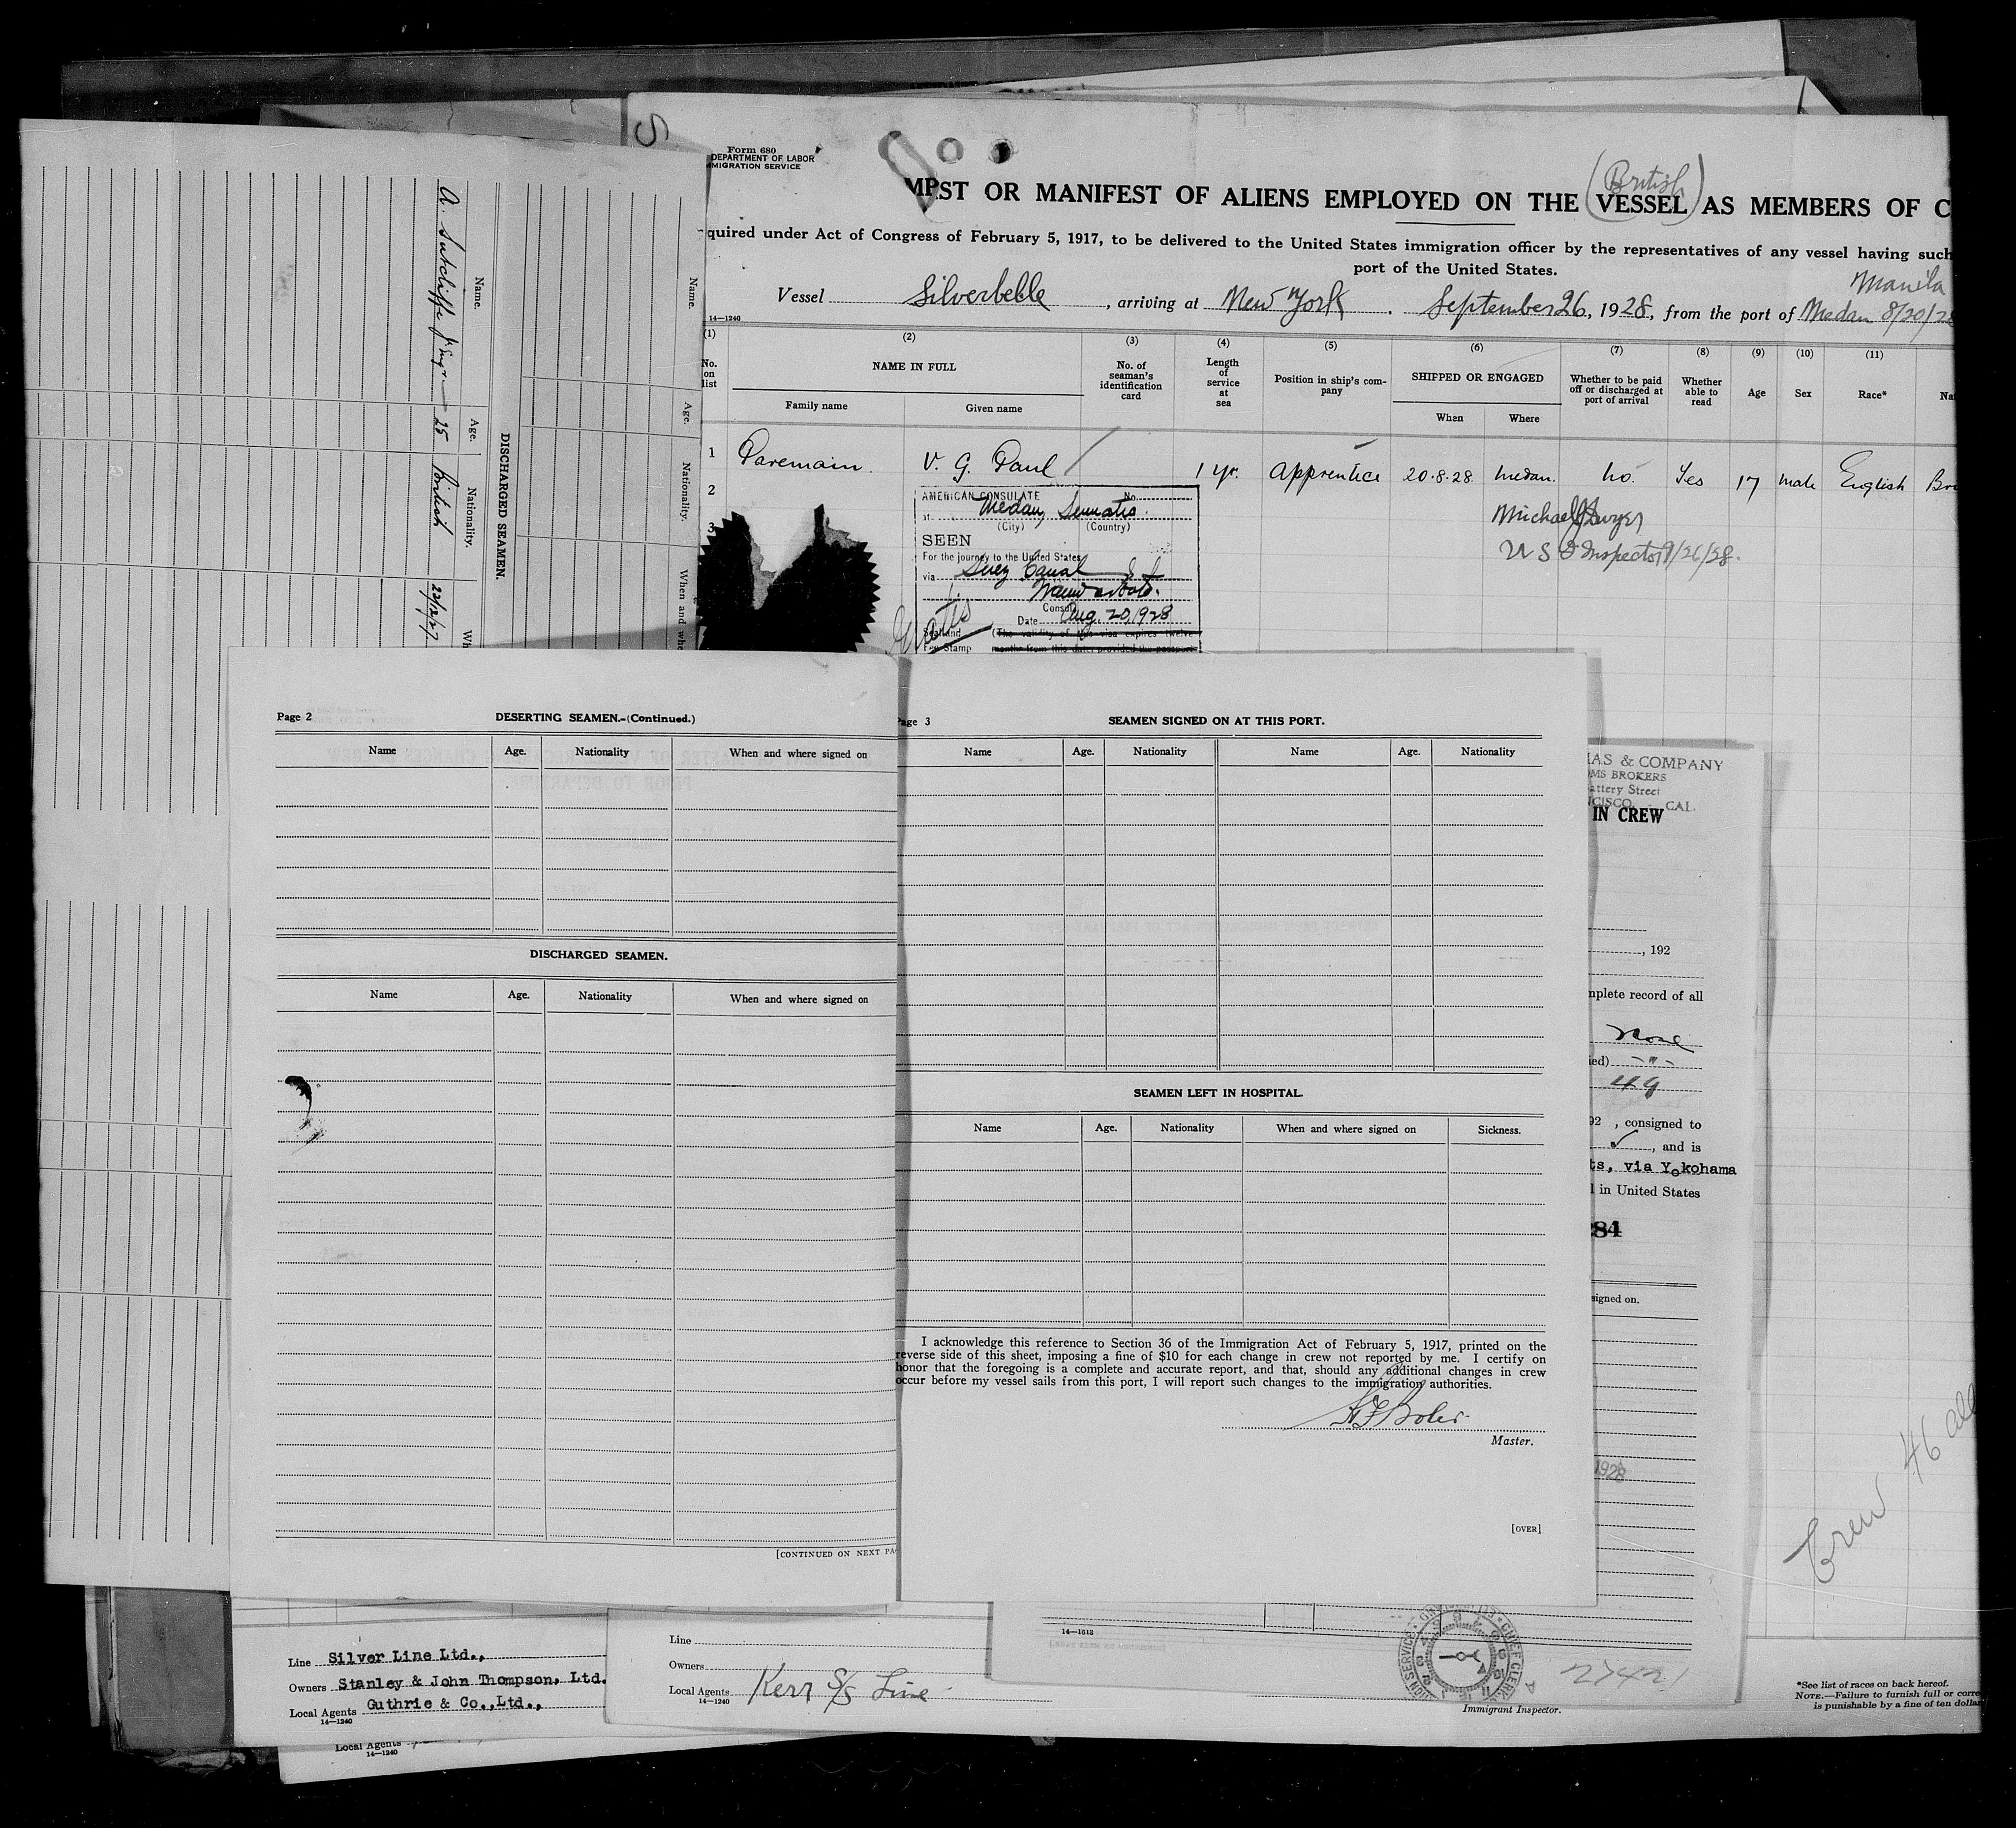 Form 680
DEPARTMENT OF LABOR
MIGRATION SERVICE
ST OR MANIFEST OF ALIENS EMPLOYED ON THE VESSEL AS MEMBERS OF C
(British)
quired under Act of Congress of February 5, 1917, to be delivered to the United States immigration officer by the representatives of any vessel having such
port of the United States.
Manila
Vessel Silverbelle, arriving at New York. September 26, 1928, from the port of Medan 8/20/28
14—1240
(1) (2) (3) (4) (5) (6) (7) (8) (9) (10) (11)
No. on list
NAME IN FULL
Family name
Given name
No. of seaman's identification card
Length of service at sea
Position in ship's company
SHIPPED OR ENGAGED
When
Where
Whether to be paid off or discharged at port of arrival
Whether able to read
Age
Sex
Race*
Nat
1 Paremain. V. G. Paul / 1 yr. Apprentice 20.8.28 Medan. No. Yes 17 male English Bri
2
3
Michael J Dwyer
U S I Inspector 9/26/28.
AMERICAN CONSULATE No.
at Medan, Sumatra.
(City) (Country)
SEEN
For the journey to the United States
via Suez Canal
Consul
Date Aug. 20, 1928
Seal and (The validity of this visa expires twelve
Fee Stamp months from this date, provided the passport
Gratis
Name. Age. Nationality. Wh
A. Sutcliffe Jr Engr. 25 British 22/12/27
DISCHARGED SEAMEN.
Name. Age. Nationality. When and whe
Page 2
DESERTING SEAMEN.-(Continued.)
Name Age. Nationality When and where signed on
DISCHARGED SEAMEN.
Name Age. Nationality When and where signed on
[CONTINUED ON NEXT PA
Page 3
SEAMEN SIGNED ON AT THIS PORT.
Name Age. Nationality Name Age. Nationality
SEAMEN LEFT IN HOSPITAL.
Name Age. Nationality When and where signed on Sickness.
I acknowledge this reference to Section 36 of the Immigration Act of February 5, 1917, printed on the
reverse side of this sheet, imposing a fine of $10 for each change in crew not reported by me. I certify on
honor that the foregoing is a complete and accurate report, and that, should any additional changes in crew
occur before my vessel sails from this port, I will report such changes to the immigration authorities.
Master.
[OVER]
AS & COMPANY
MS BROKERS
attery Street
NCISCO, - CAL.
IN CREW
, 192
mplete record of all
None
ied) -"-
49
92 , consigned to
✓, and is
ts, via Yokohama
l in United States
284
signed on.
1928
Crew 46 all
14—1613
27421
Immigrant Inspector.
*See list of races on back hereof.
NOTE.—Failure to furnish full or corre
is punishable by a fine of ten dolla
Line Silver Line Ltd.,
Owners Stanley & John Thompson, Ltd.
Local Agents Guthrie & Co.,Ltd.,
14—1240
Line
Owners
Local Agents Kerr S/S Line
14—1240
Local Agents
14—1240